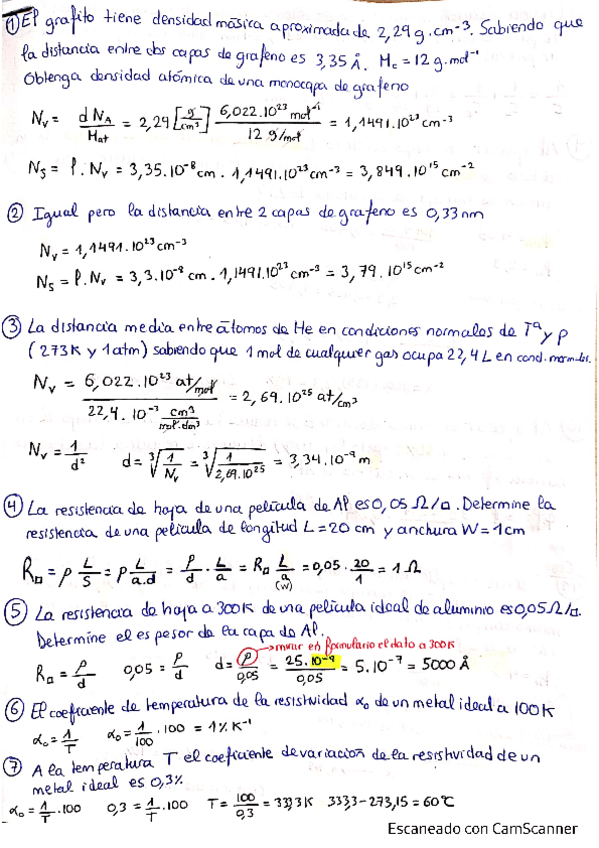 ① El grafito tiene densidad másica aproximada de 2,29 g.cm⁻³. Sabiendo que
la distancia entre dos capas de grafeno es 3,35 Å. Mc = 12 g.mol⁻¹
Obtenga densidad atómica de una monocapa de grafeno
Nv = d NA / Mat = 2,29 [g/cm³] 6,022.10²³ mol⁻¹ / 12 g/mol = 1,1491.10²³ cm⁻³
Ns = l . Nv = 3,35.10⁻⁸ cm . 1,1491.10²³ cm⁻³ = 3,849.10¹⁵ cm⁻²
② Igual pero la distancia entre 2 capas de grafeno es 0,33 nm
Nv = 1,1491.10²³ cm⁻³
Ns = l . Nv = 3,3.10⁻⁸ cm . 1,1491.10²³ cm⁻³ = 3,79.10¹⁵ cm⁻²
③ La distancia media entre átomos de He en condiciones normales de Tª y p
(273K y 1atm) sabiendo que 1 mol de cualquier gas ocupa 22,4 L en cond. normales.
Nv = 6,022.10²³ at/mol / 22,4.10⁻³ cm³/mol.dm³ = 2,69.10²⁵ at/cm³
Nv = 1/d² d = ³√(1/Nv) = ³√(1/2,69.10²⁵) = 3,34.10⁻⁹ m
④ La resistencia de hoja de una película de Al es 0,05 Ω/□. Determine la
resistencia de una película de longitud L = 20 cm y anchura W = 1 cm
R□ = ρ L/S = ρ L/a.d = ρ/d . L/a = R□ L/a (W) = 0,05 . 20/1 = 1 Ω
⑤ La resistencia de hoja a 300K de una película ideal de aluminio es 0,05 Ω/□.
Determine el espesor de la capa de Al.
→ mirar en formulario el dato a 300K
R□ = ρ/d 0,05 = ρ/d d = ρ/0,05 = 25.10⁻⁹/0,05 = 5.10⁻⁷ = 5000 Å
⑥ El coeficiente de temperatura de la resistividad α₀ de un metal ideal a 100K
α₀ = 1/T α₀ = 1/100 . 100 = 1% K⁻¹
⑦ A la temperatura T el coeficiente de variación de la resistividad de un
metal ideal es 0,3%
α₀ = 1/T . 100 0,3 = 1/T . 100 T = 100/0,3 = 333,3 K 333,3 - 273,15 = 60°C
Escaneado con CamScanner